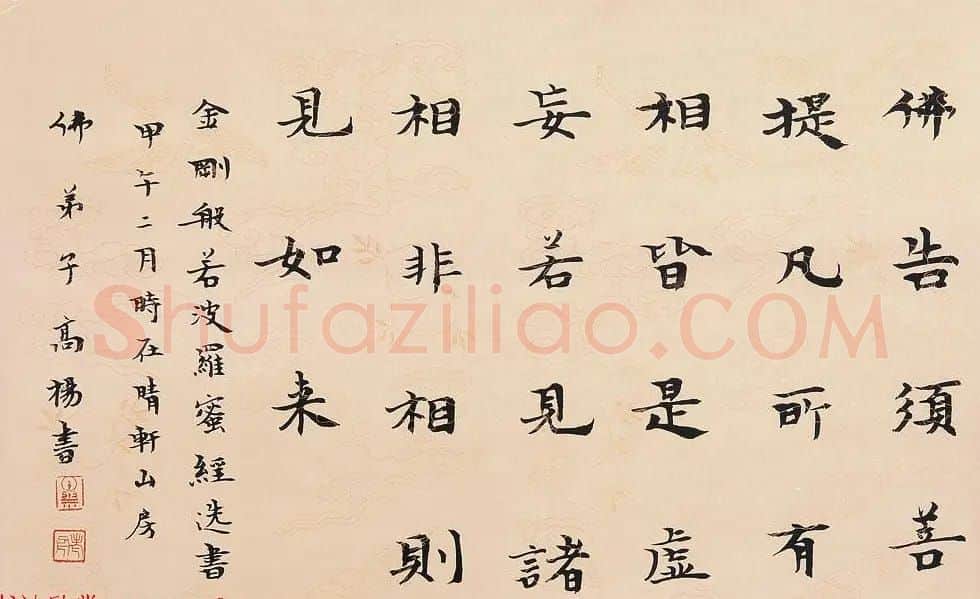 佛告須菩
提凡所有
相皆是虛
妄若見諸
相非相則
見如来
金剛般若波羅蜜經选書
甲午二月時在晴軒山房
佛弟子高揚書
Shufaziliao.COM